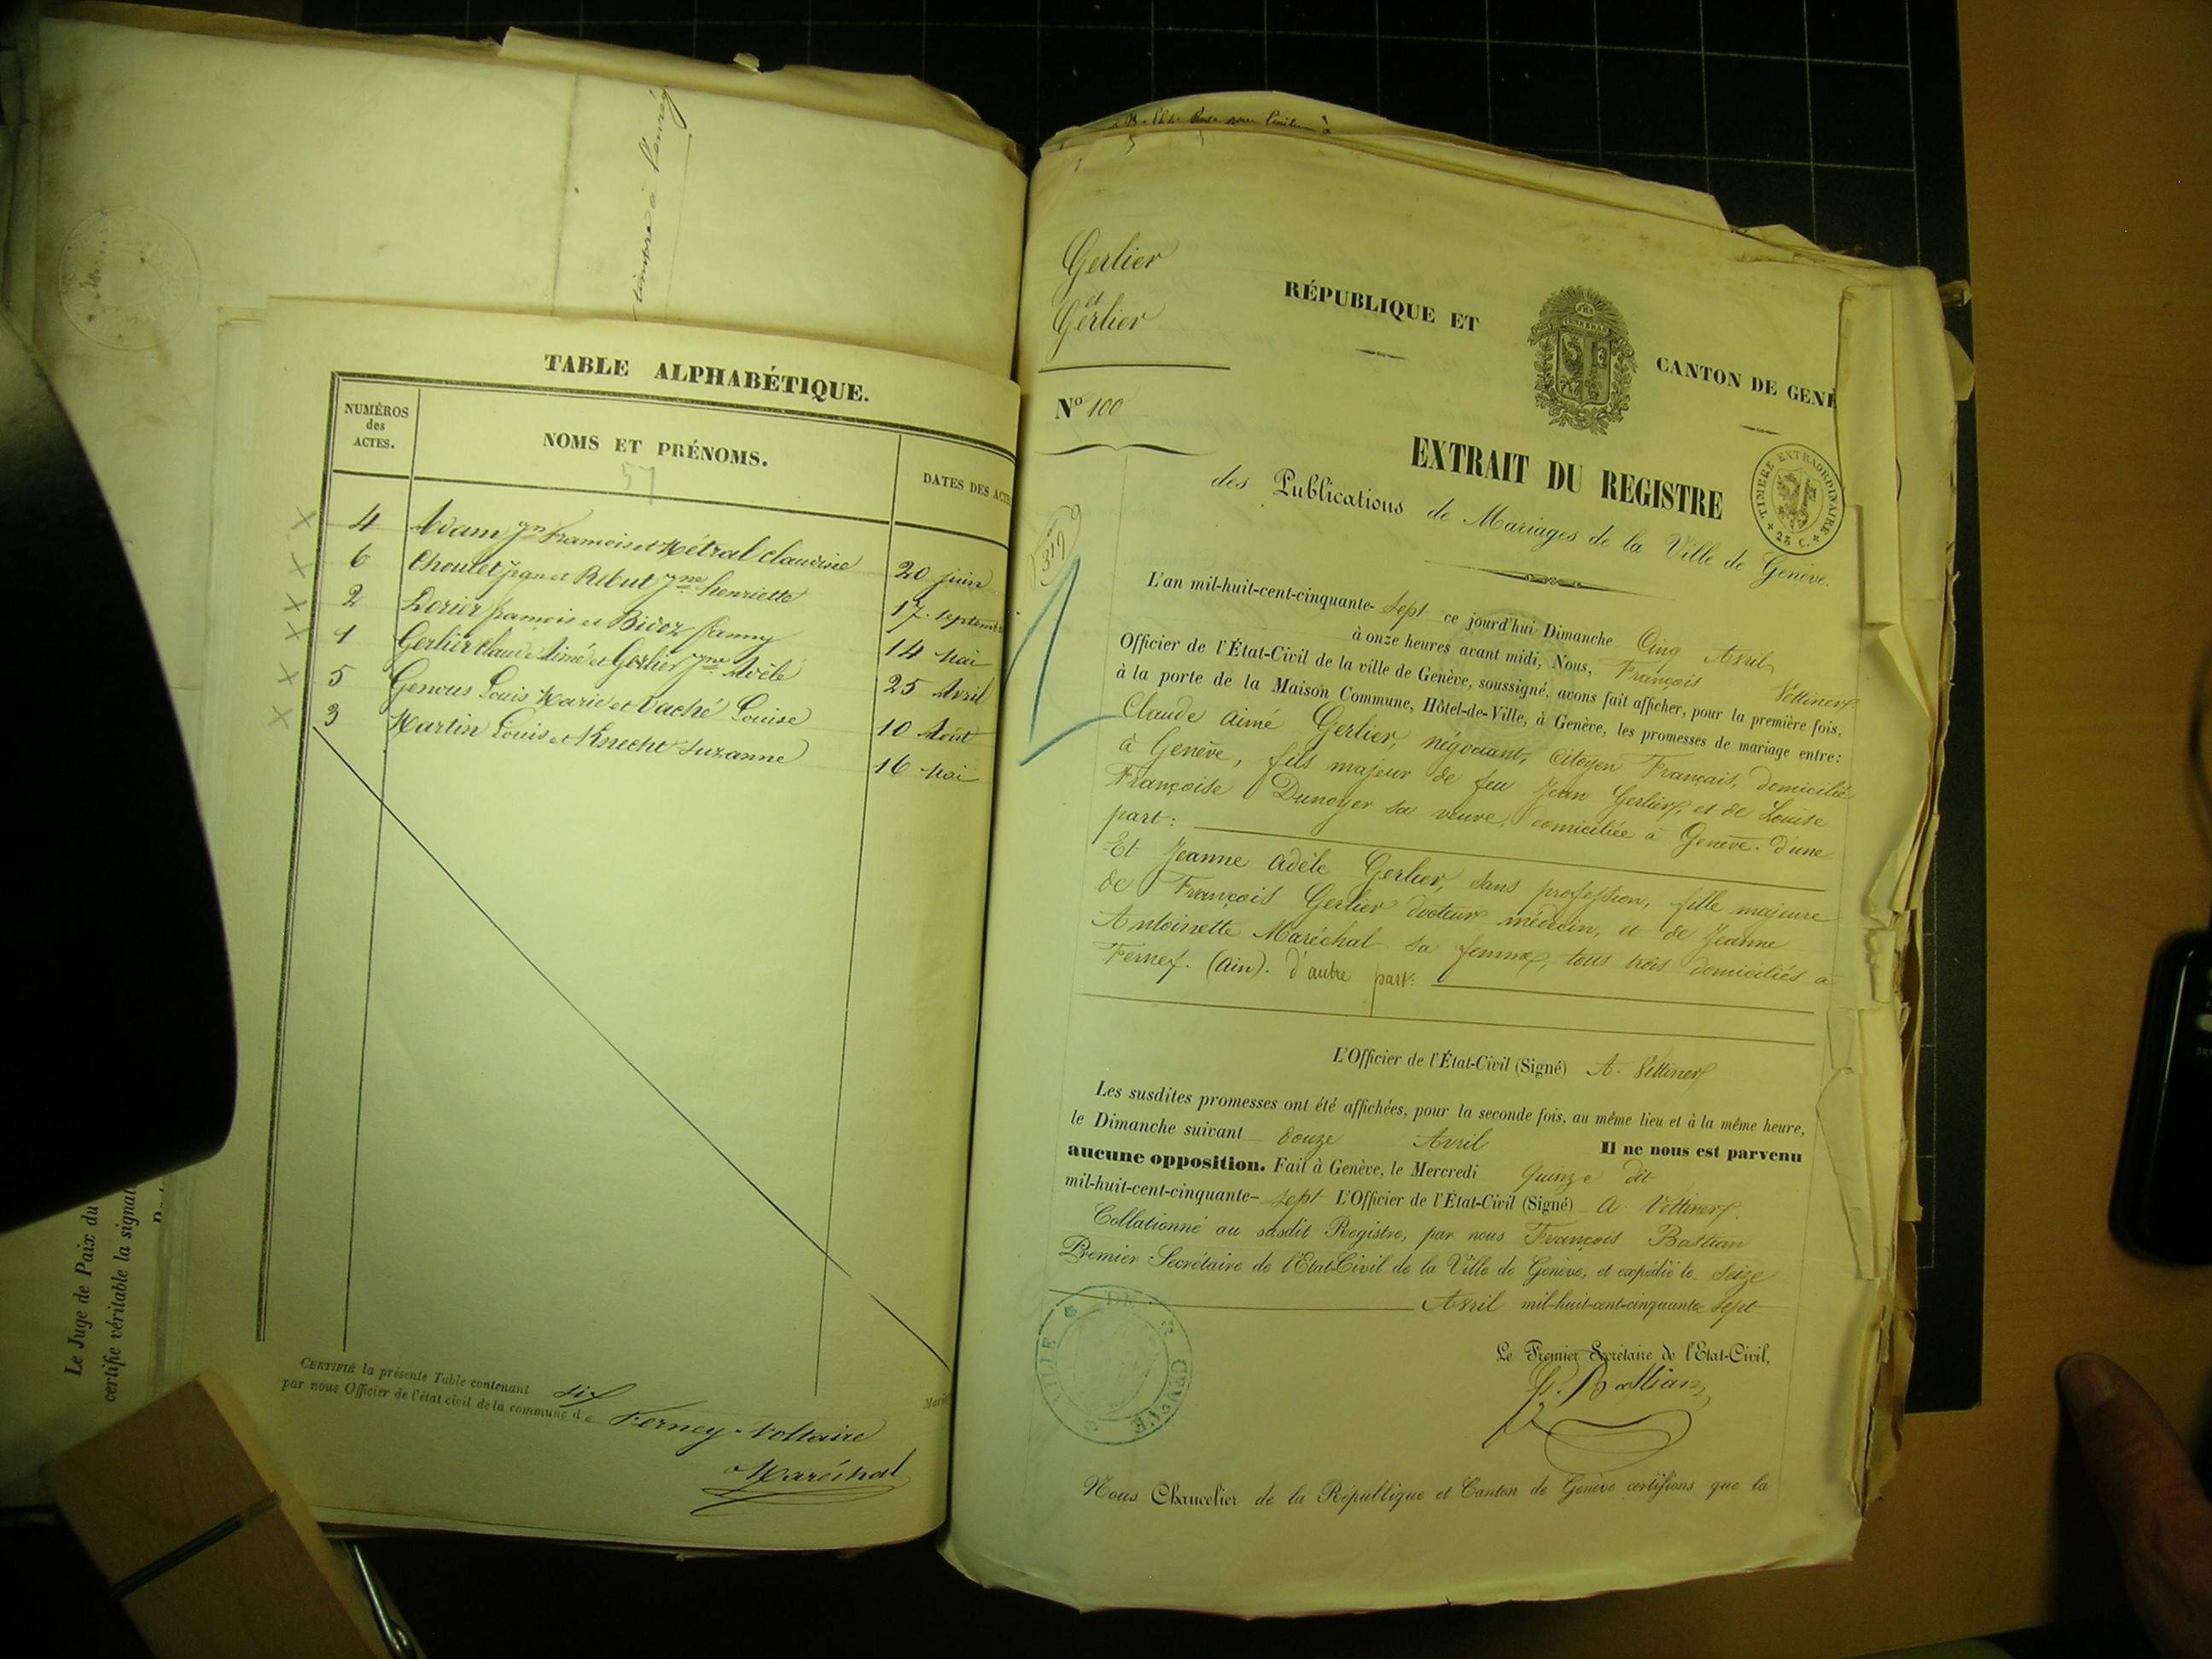 timbre à l'enreg
TABLE ALPHABÉTIQUE.
NUMÉROS des ACTES.
NOMS ET PRÉNOMS.
DATES DES ACTE
57
4 Adam Jn François et Métral Claudine 20 juin
6 Choulet Jean et Ribut Jne henriette 17 septembre
2 Dorier francois et Bidoz fanny 14 Mai
1 Gerlier Claude Aimé et Gerlier Jne Adèle 25 Avril
5 Genous Louis Marie et Vaché Louise 10 Août
3 Martin Louis et Knecht Suzanne 16 Mai
CERTIFIÉ la présente Table contenant six Maria
par nous Officier de l'état civil de la commune de Ferney-Voltaire
Maréchal
Le Juge de Paix du
certifie véritable la signat
Gerlier
et
Gerlier
No 100
319
RÉPUBLIQUE ET CANTON DE GENÈ
TIMBRE EXTRAORDINAIRE
25 C.
EXTRAIT DU REGISTRE
des Publications de Mariages de la Ville de Genève.
L'an mil-huit-cent-cinquante- sept ce jourd'hui Dimanche Cinq Avril
à onze heures avant midi, Nous, François Vettiner
Officier de l'État-Civil de la ville de Genève, soussigné, avons fait afficher, pour la première fois,
à la porte de la Maison Commune, Hôtel-de-Ville, à Genève, les promesses de mariage entre:
Claude Aimé Gerlier, négociant, Citoyen Français, domicilié
à Genève, fils majeur de feu Jean Gerlier, et de Louise
Françoise Dunoyer sa veuve, domiciliée à Genève. d'une
part:
Et Jeanne Adèle Gerlier, sans profession, fille majeure
de François Gerlier docteur médecin, et de Jeanne
Antoinette Maréchal sa femme, tous trois domiciliés à
Ferney. (Ain). d'autre part:
L'Officier de l'État-Civil (Signé) A. Vettiner
Les susdites promesses ont été affichées, pour la seconde fois, au même lieu et à la même heure,
le Dimanche suivant douze Avril Il ne nous est parvenu
aucune opposition. Fait à Genève, le Mercredi quinze dit
mil-huit-cent-cinquante- sept L'Officier de l'État-Civil (Signé) A. Vettiner
Collationné au susdit Registre, par nous François Bastian
Premier Secrétaire de l'Etat-Civil de la Ville de Genève, et expédié le seize
Avril mil-huit-cent-cinquante sept
VILLE DE GENEVE
Le Premier Secrétaire de l'Etat-Civil,
F. Bastian
Nous Chancelier de la République et Canton de Genève certifions que la